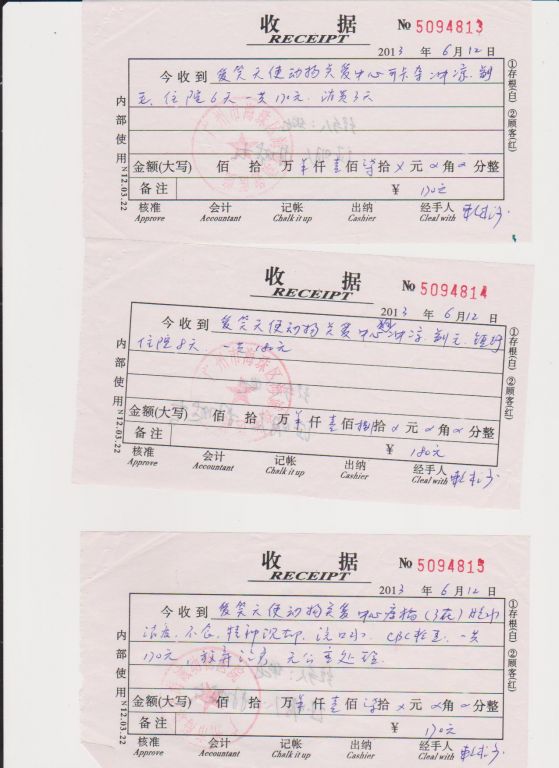 收 据
RECEIPT
No 5094813
2013 年 6 月 12 日
今收到 爱笑天使动物关爱中心 可卡 冲凉. 剃
毛. 住院6天 一共170元.
金额(大写) 佰 拾 万 仟 壹佰 柒拾 元 角 分整
备 注 ¥ 170元
核准 会计 记帐 出纳 经手人
Approve Accountant Chalk it up Cashier Cleal with
内部使用 N12.03.22
①存根(白) ②顾客(红)
收 据
RECEIPT
No 5094814
2013 年 6 月 12 日
今收到 爱笑天使动物关爱中心 冲凉. 剃毛.
住院8天. 一共180元
金额(大写) 佰 拾 万 仟 壹佰 捌拾 元 角 分整
备 注 ¥ 180元
核准 会计 记帐 出纳 经手人
Approve Accountant Chalk it up Cashier Cleal with
内部使用 N12.03.22
①存根(白) ②顾客(红)
收 据
RECEIPT
No 5094815
2013 年 6 月 12 日
今收到 爱笑天使动物关爱中心
不食. 精神沉郁. 流口水. CBC检查. 一共
170元, 放弃治疗
金额(大写) 佰 拾 万 仟 壹佰 柒拾 元 角 分整
备 注 ¥ 170元
核准 会计 记帐 出纳 经手人
Approve Accountant Chalk it up Cashier Cleal with
内部使用 N12.03.22
①存根(白) ②顾客(红)